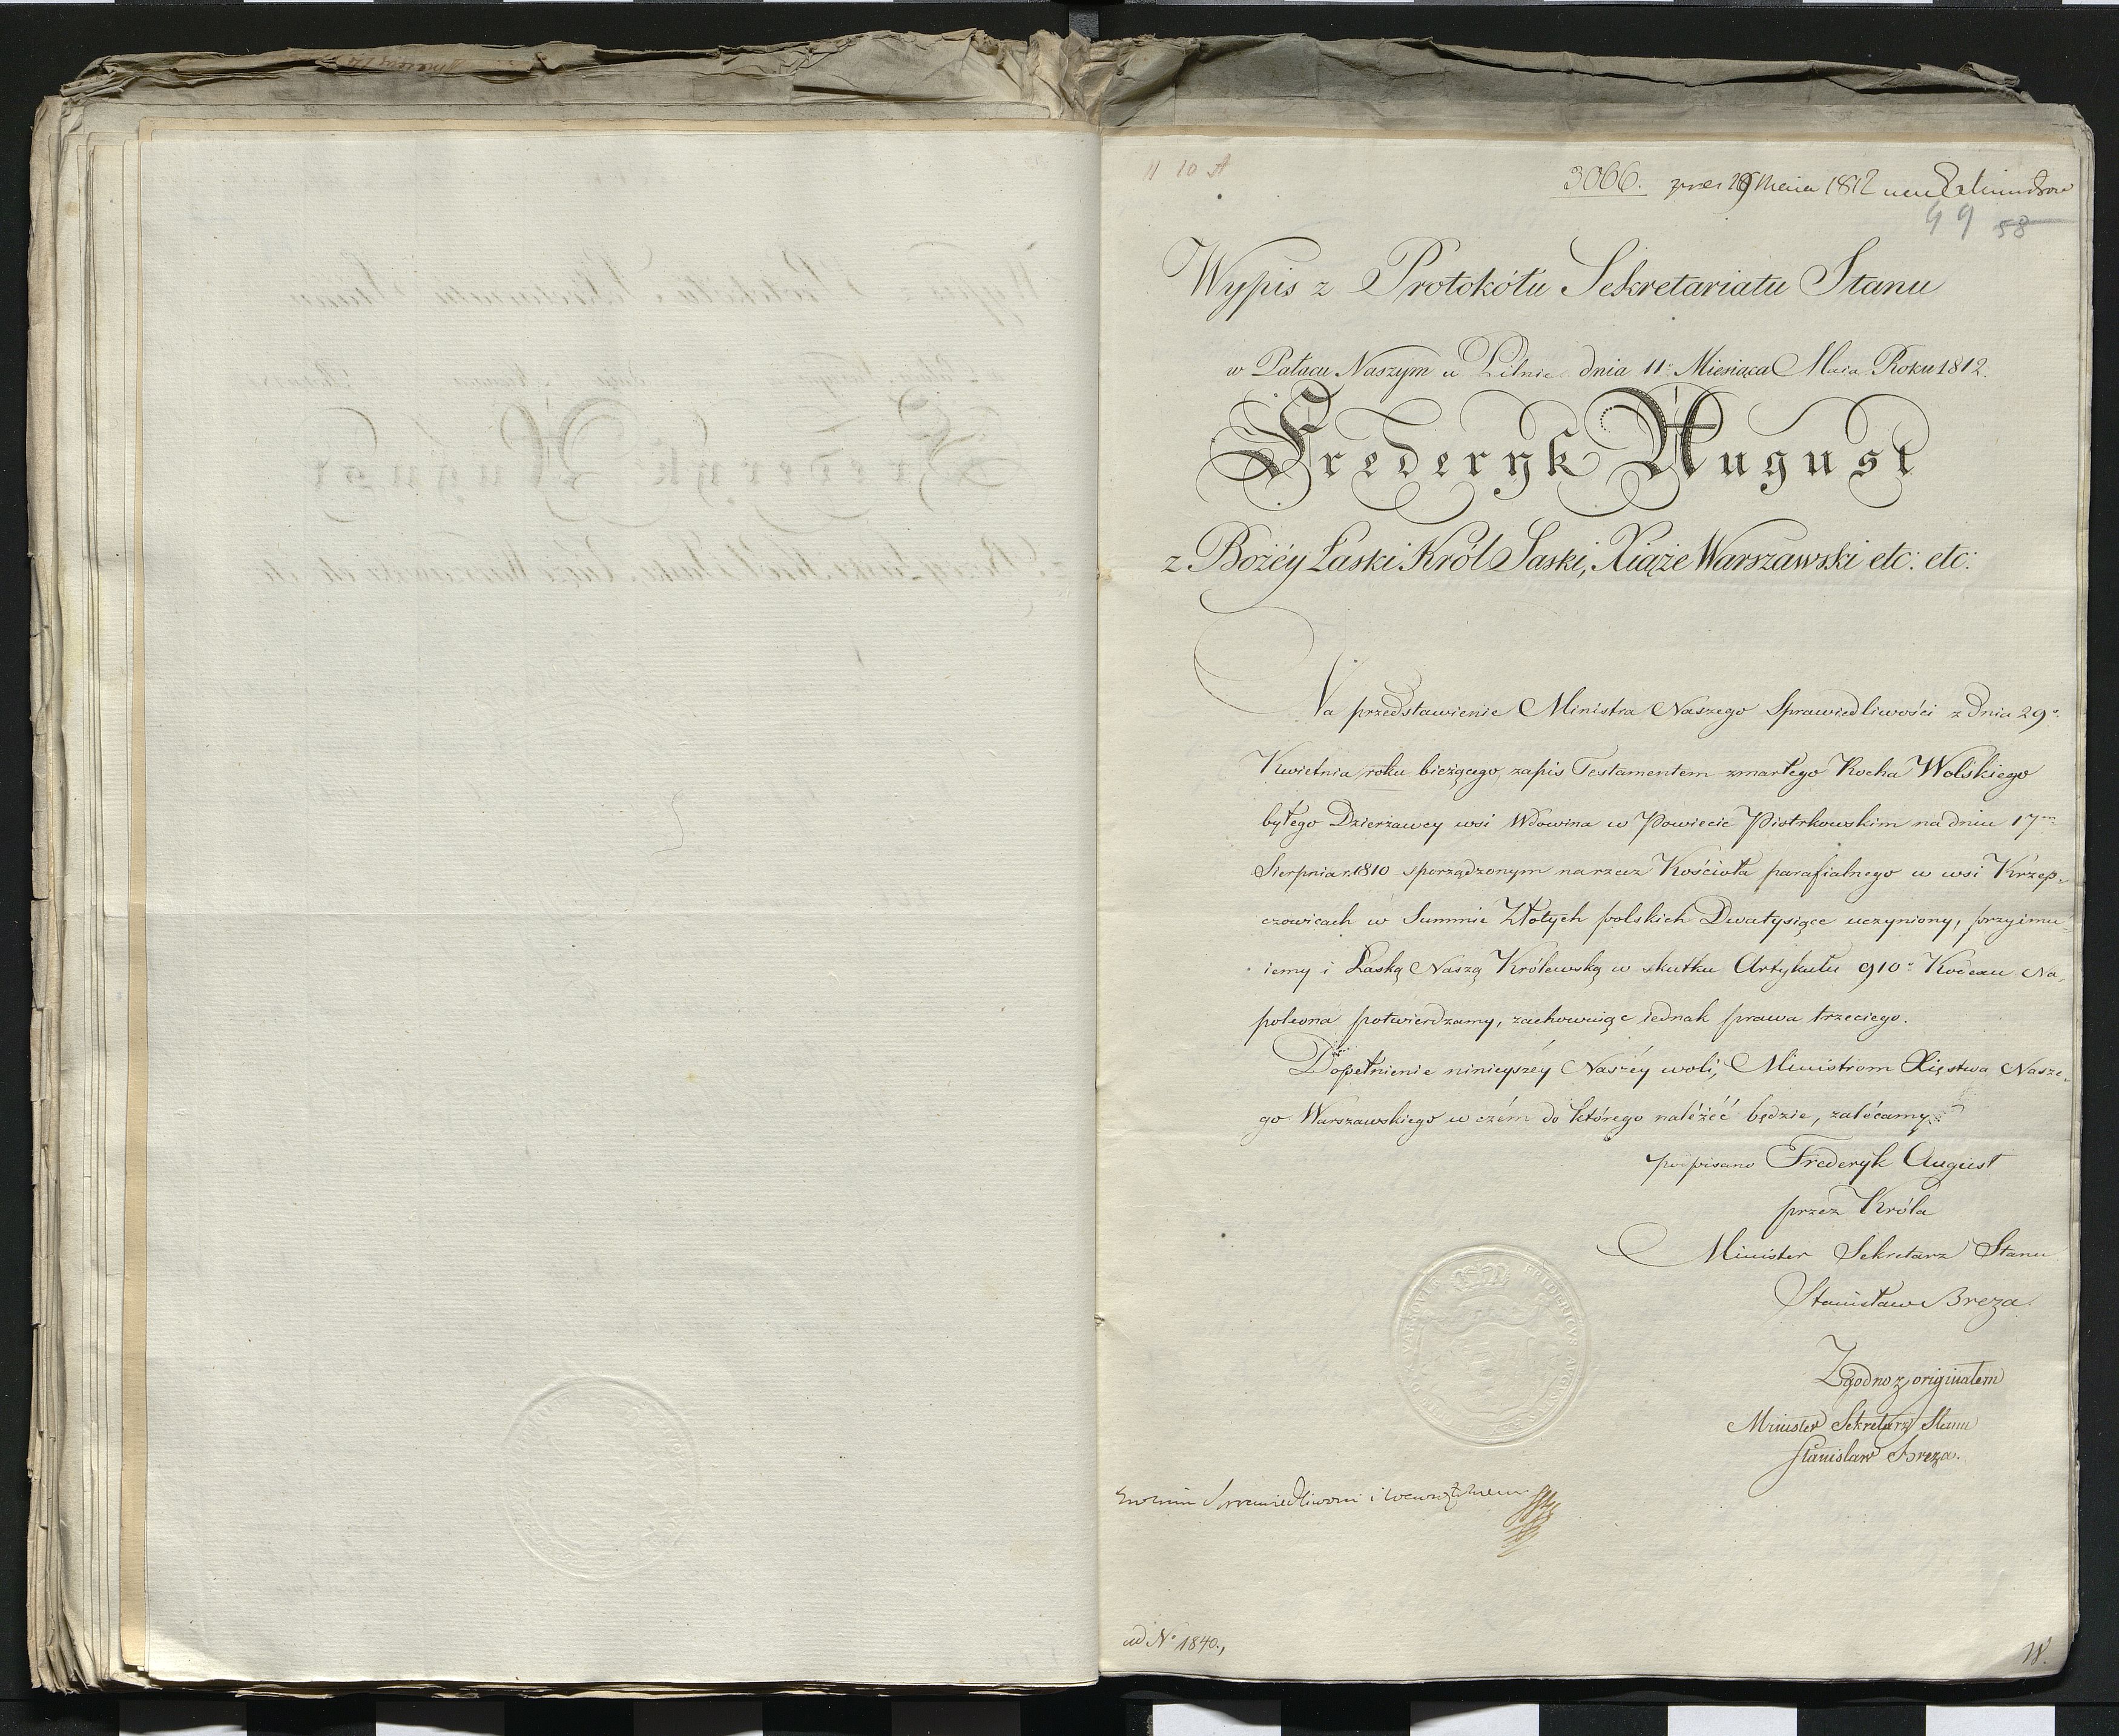 11 10 A
3066. 1812
49 58
Wypis z Protokółu Sekretariatu Stanu
w Pałacu Naszym w Pilnic dnia 11. Miesiąca Maia Roku 1812.
Frederyk August
z Bożéy Łaski Król Saski, Xiąże Warszawski etc: etc:
Na przedstawienie Ministra Naszego Sprawiedliwości z dnia 29º
Kwietnia roku bieżącego, zapis Testamentem zmarłego Rocha Wolskiego
byłego Dzierżawcy wsi Wdowina w Powiecie Piotrkowskim na dniu 17m
Sierpnia r. 1810 sporządzonym na rzecz Kościoła parafialnego w wsi Krzep-
czowicach w Summie Złotych polskich Dwatysiące uczyniony, przyimu-
iemy i Łaską Naszą Królewską w skutku Artykułu 910º Kodexu Na-
poleona potwierdzamy, zachowuiąc iednak prawa trzeciego.
Dopełnienie ninieyszéy Naszéy woli, Ministrom Xięstwa Nasze-
go Warszawskiego w czém do którego należéć będzie, zalécamy.
podpisano Frederyk August
przez Króla
Minister Sekretarz Stanu
Stanisław Breza.
FRIDERICVS AVGVSTVS REX VARSOVIE
Zgodno z originałem
Minister Sekretarz Stanu
Stanisław Breza.
Sprawiedliwości i
ad Nº 1840.,
W.